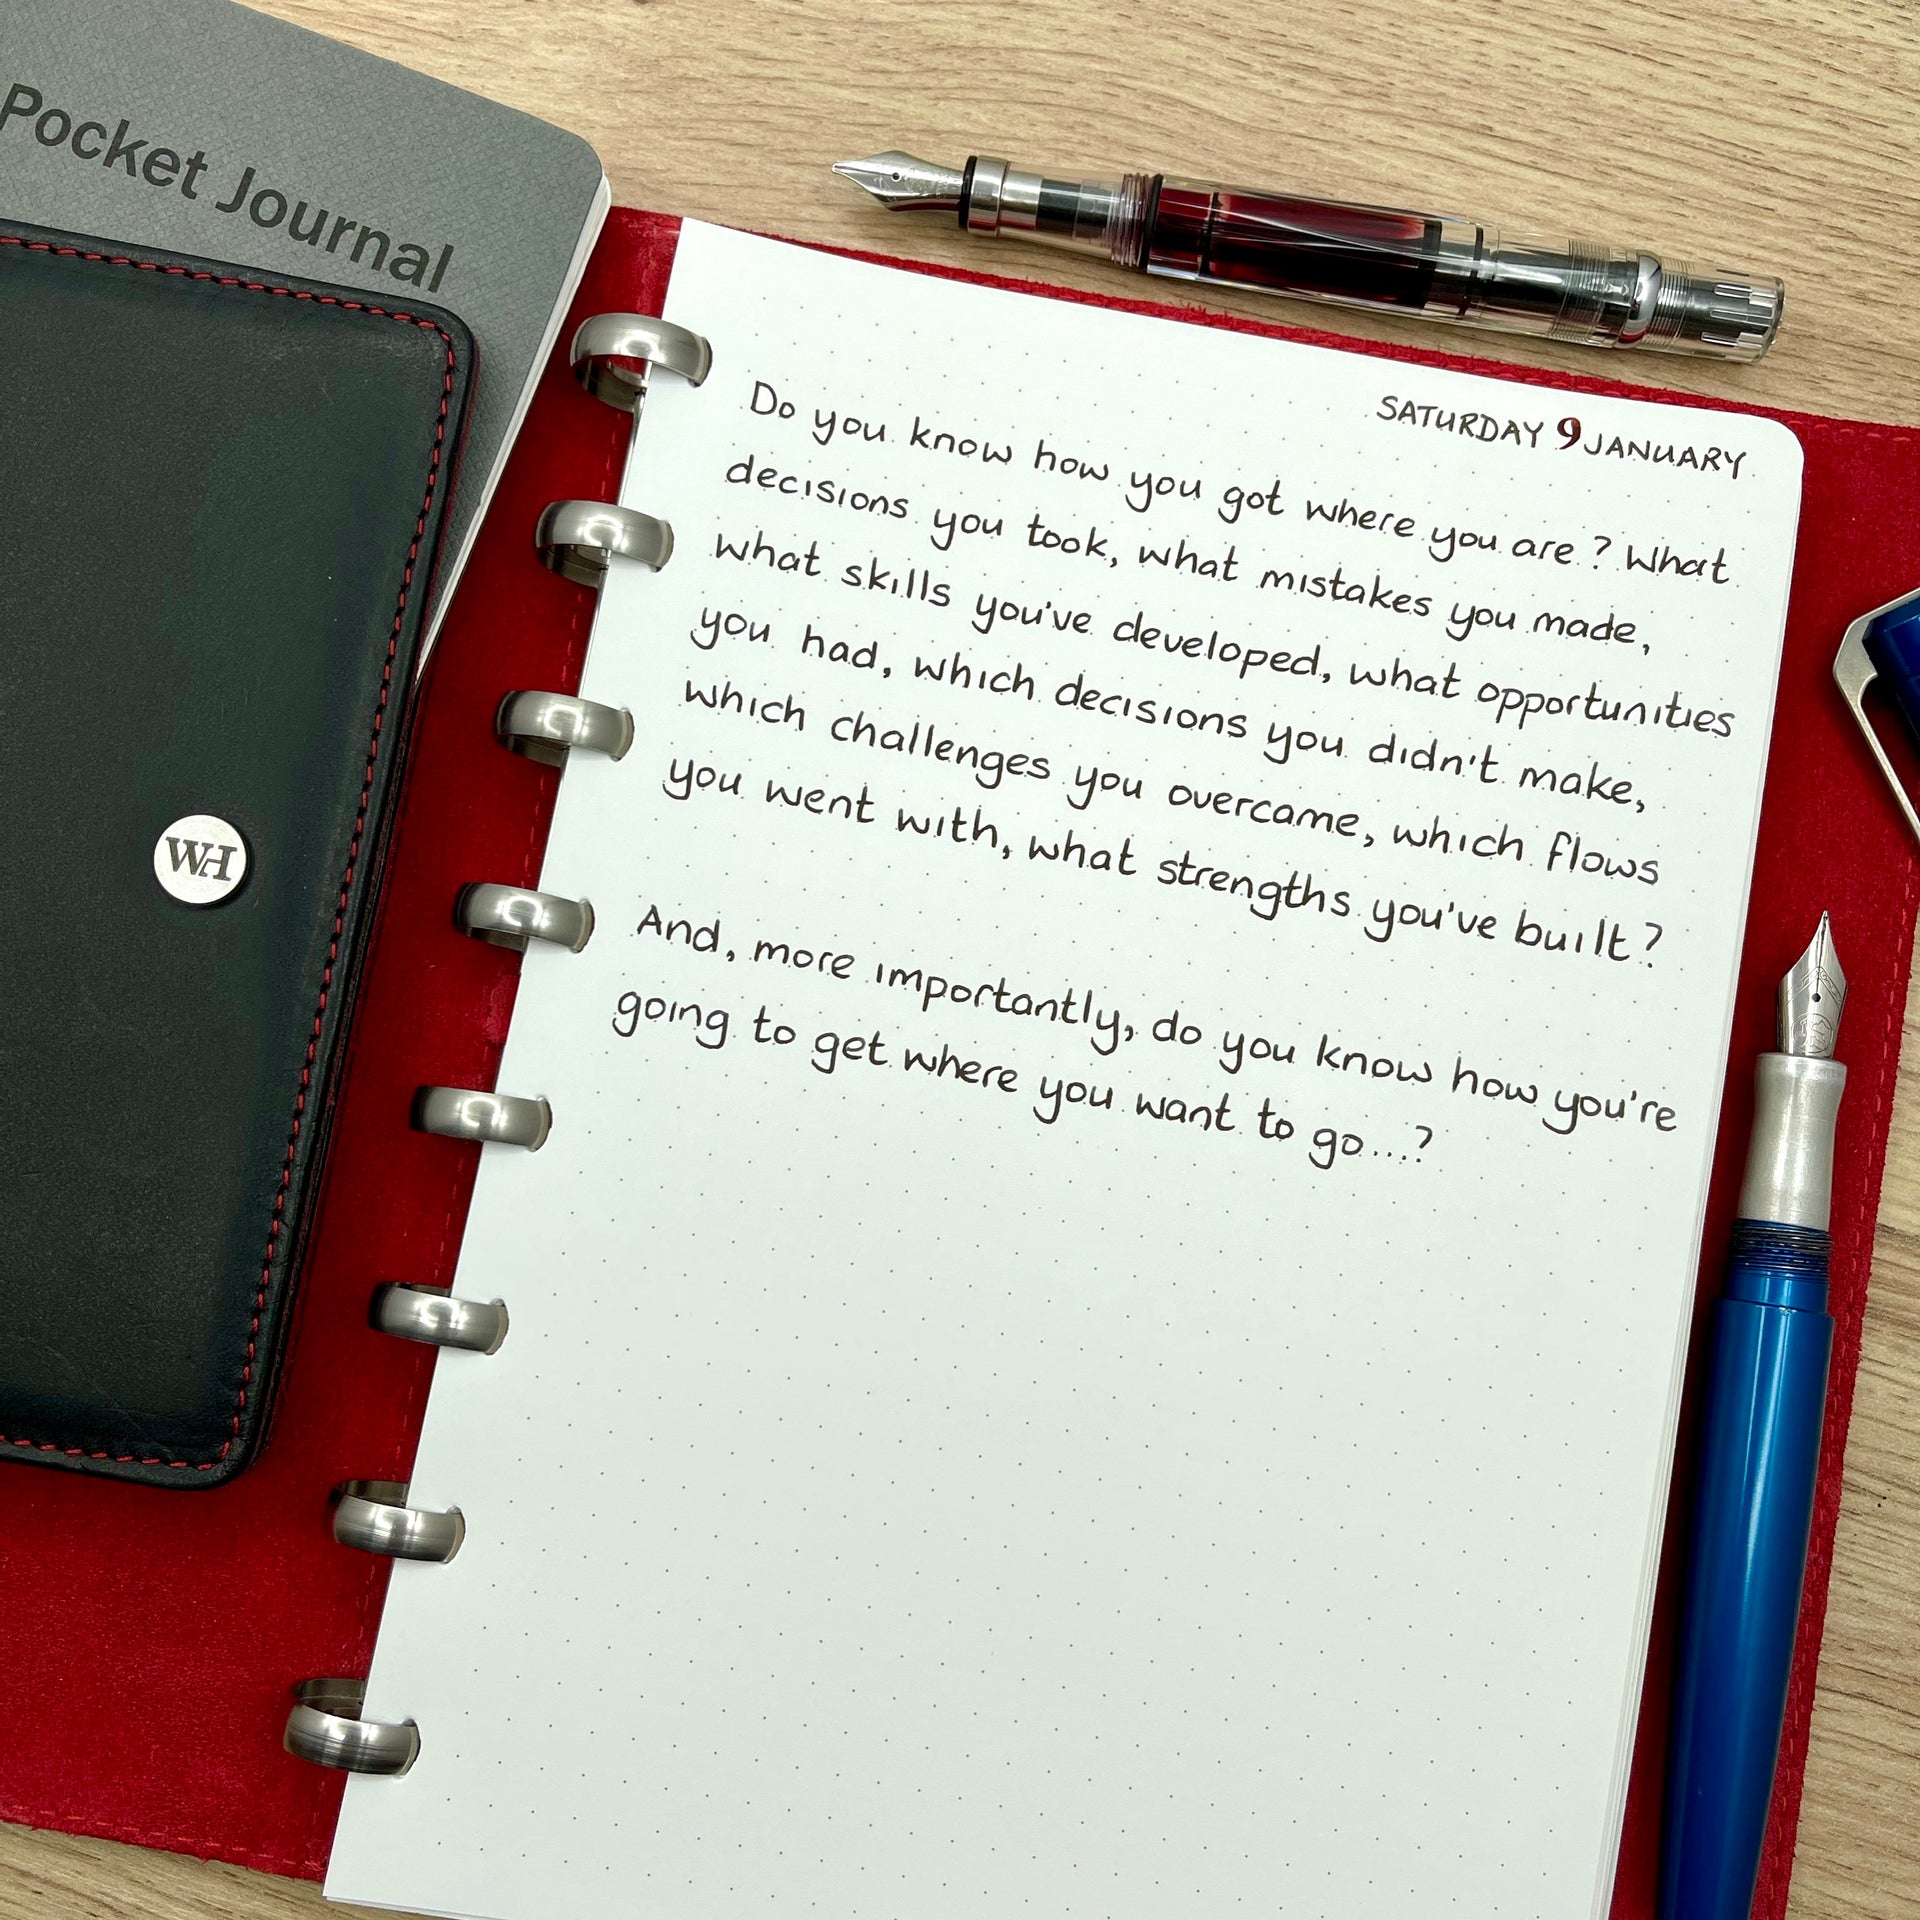 Pocket Journal
WH
SATURDAY 9 JANUARY
Do you know how you got where you are? What
decisions you took, what mistakes you made,
what skills you've developed, what opportunities
you had, which decisions you didn't make,
which challenges you overcame, which flows
you went with, what strengths you've built?
And, more importantly, do you know how you're
going to get where you want to go...?